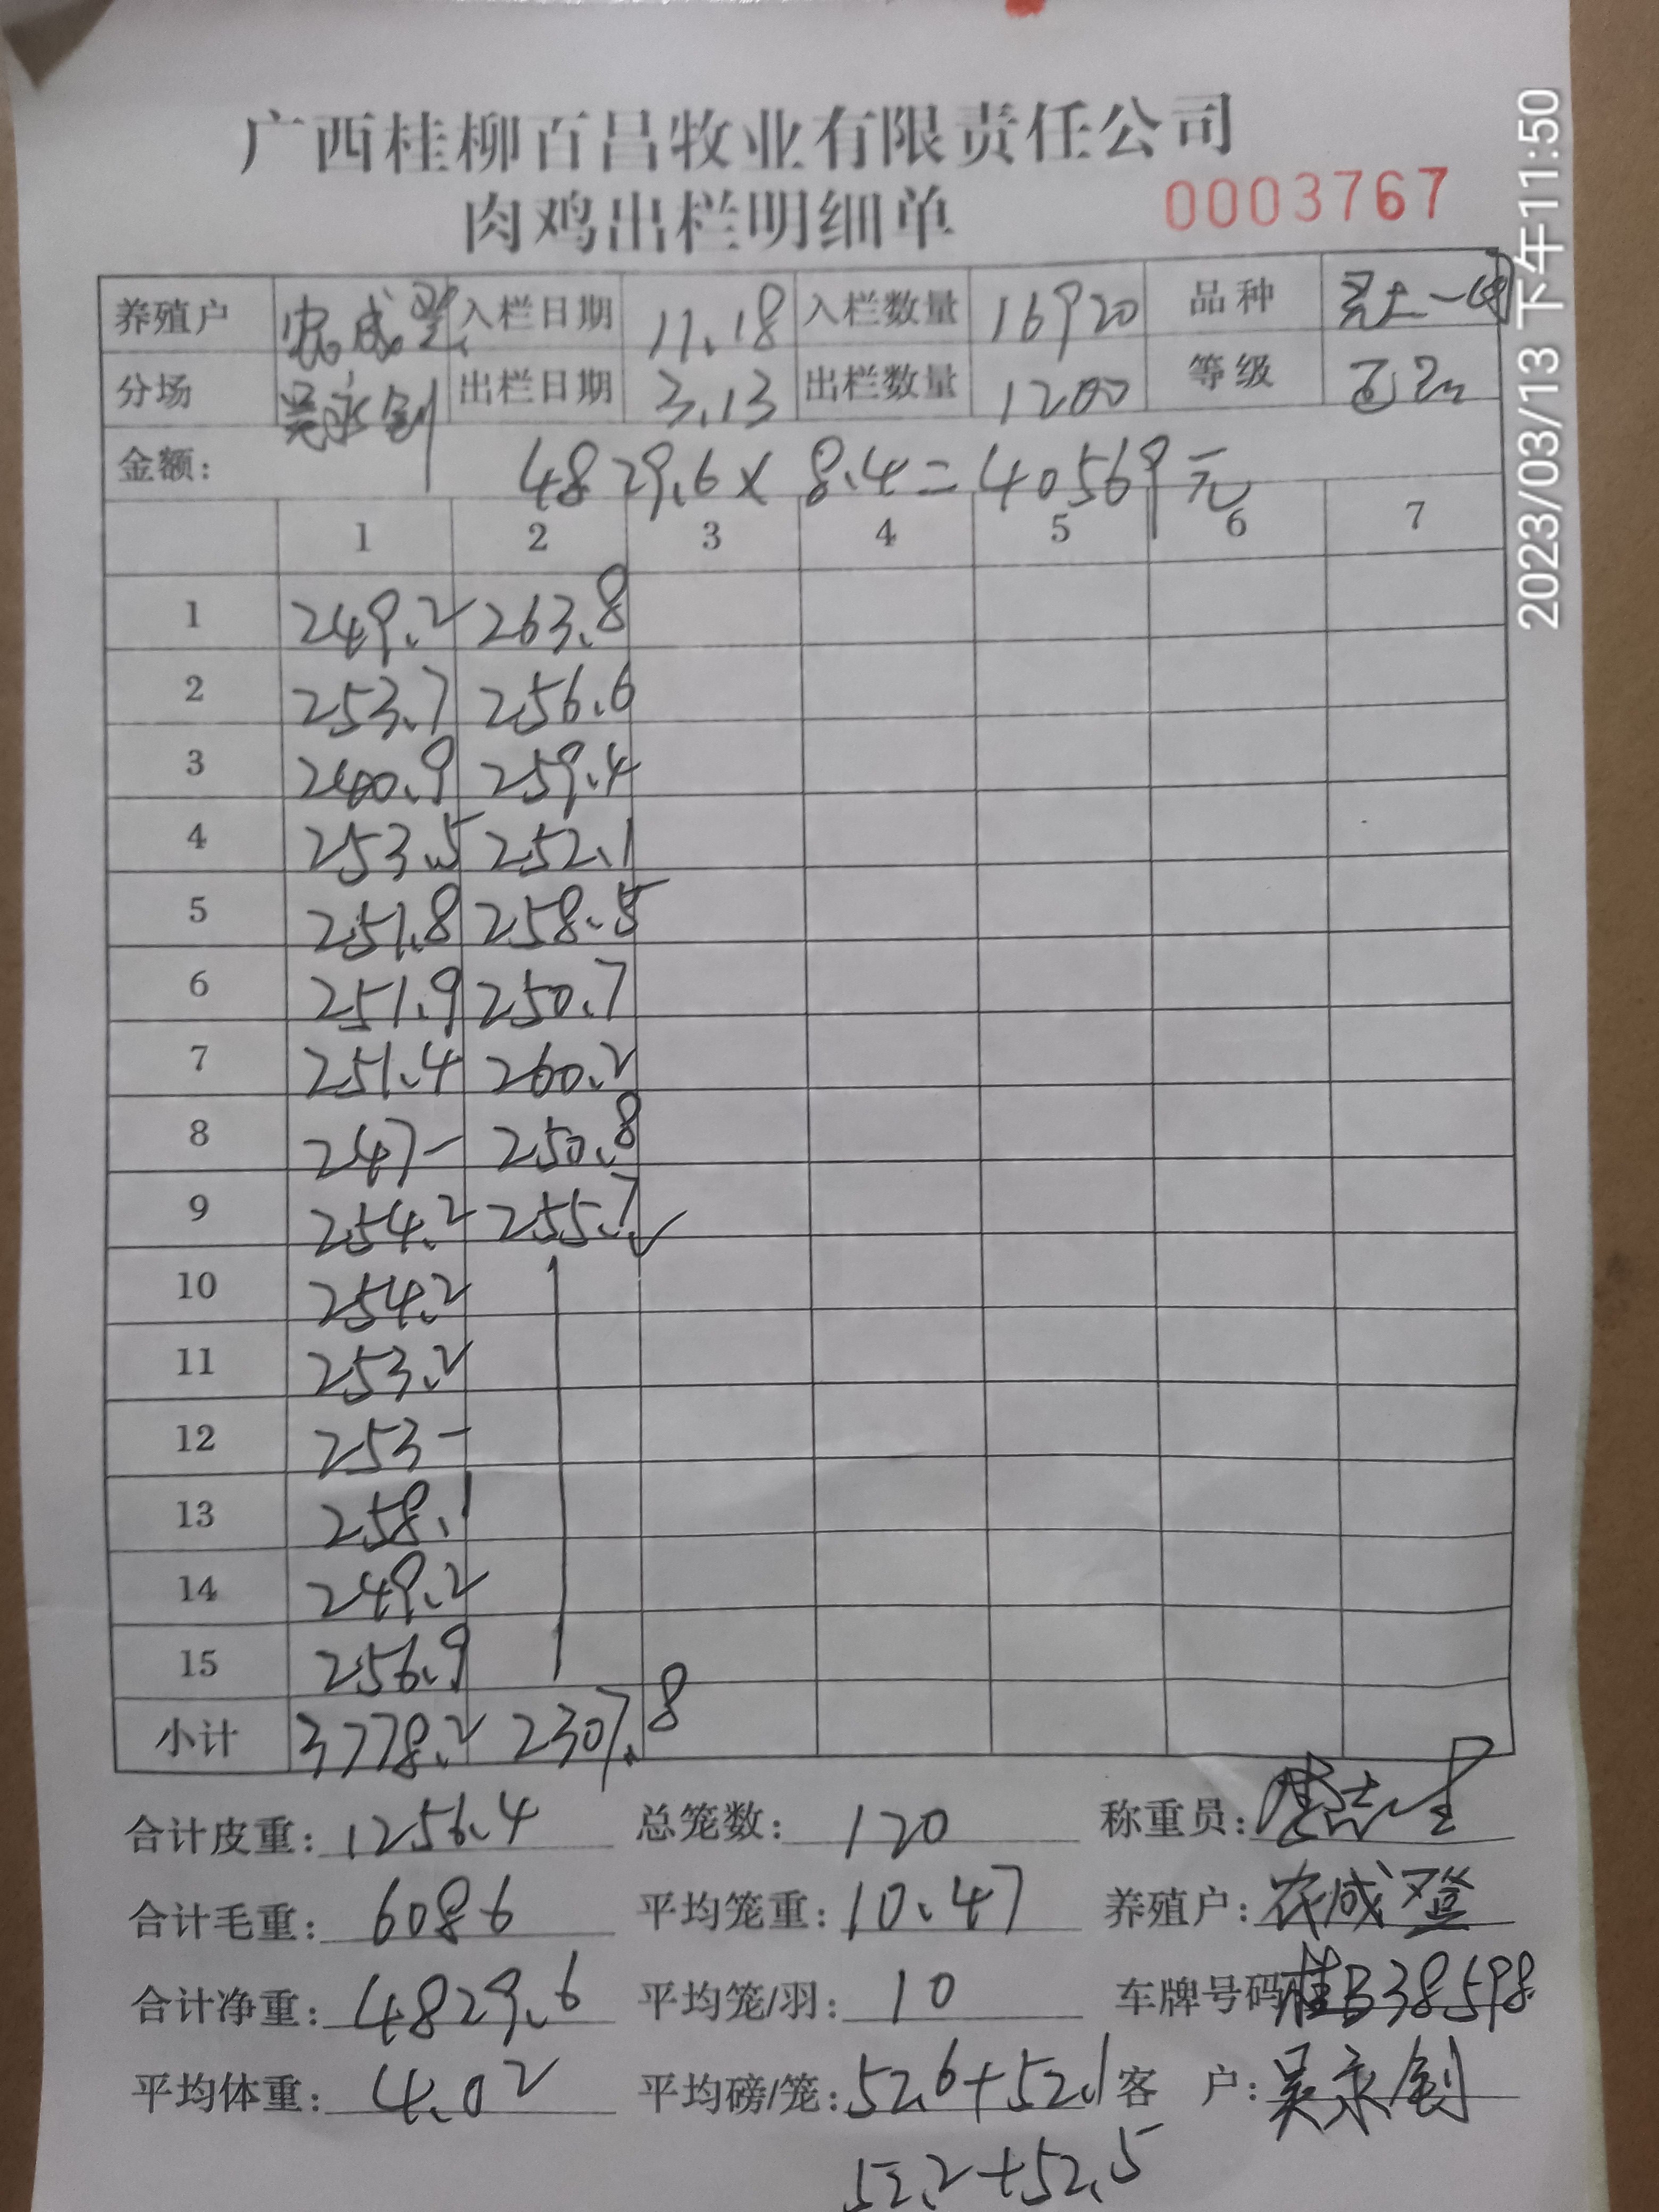 广西桂柳百昌牧业有限责任公司
肉鸡出栏明细单 0003767
养殖户 农成登 入栏日期 11.18 入栏数量 16920 品种
分场 吴永剑 出栏日期 3.13 出栏数量 1200 等级
金额: 4829.6×8.4=40569元
1 2 3 4 5 6 7
1 249.2 263.8
2 253.7 256.6
3 240.9 259.4
4 253.5 252.1
5 251.8 258.5
6 251.9 250.7
7 251.4 260.2
8 247- 250.8
9 254.2 255.7
10 254.2
11 253.2
12 253-
13 258.1
14 249.2
15 256.9
小计 3778.2 2307.8
合计皮重: 1256.4 总笼数: 120 称重员:
合计毛重: 6086 平均笼重: 10.47 养殖户: 农成登
合计净重: 4829.6 平均笼/羽: 10 车牌号码 桂B38598
平均体重: 4.02 平均磅/笼: 52.6+52.1 客 户: 吴永剑
52.2+52.5
2023/03/13 下午11:50